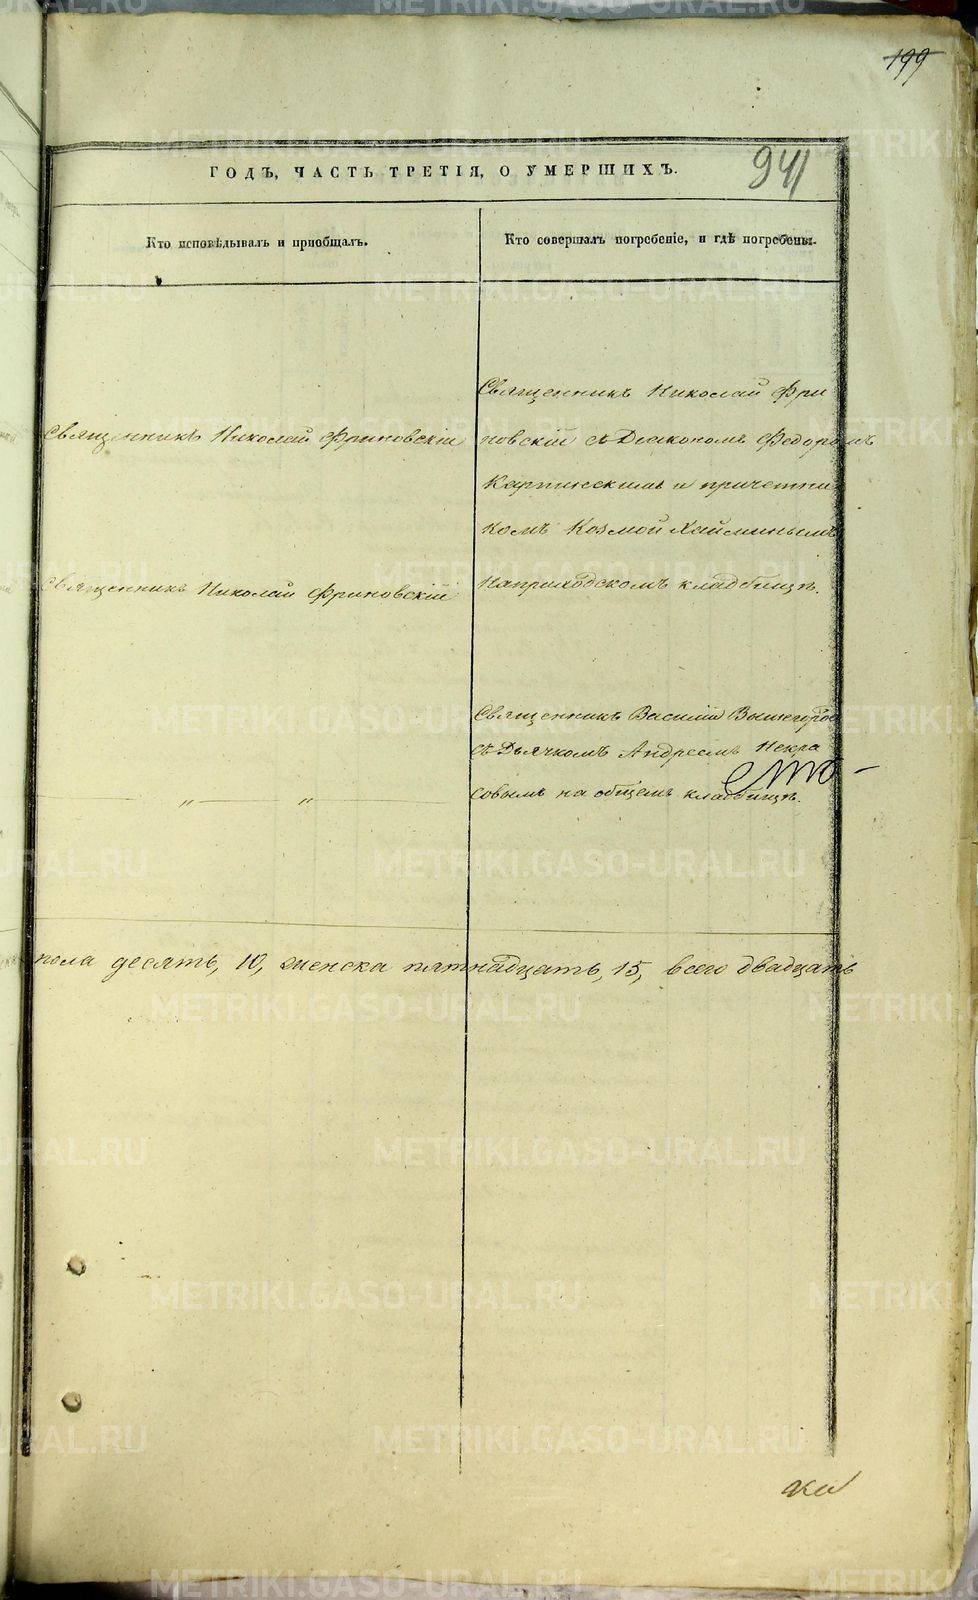 199
941
ГОДЪ, ЧАСТЬ ТРЕТІЯ, О УМЕРШИХЪ.
Кто исповѣдывалъ и приобщалъ.
Кто совершалъ погребеніе, и гдѣ погребены.
Священникъ Николай Фриновскій
Священникъ Николай Фриновскій
Священникъ Николай Фри
новскій съ Діакономъ Федоромъ
и причетни
комъ Козмой Хайминымъ
Наприходскомъ кладбищѣ.
Священникъ Василій Вышегород
съ Дьячкомъ Андреемъ Некра
совымъ на общемъ кладбищѣ.
пола десять, 10, женска пятнадцать, 15, всего двадцать
METRIKI.GASO-URAL.RU